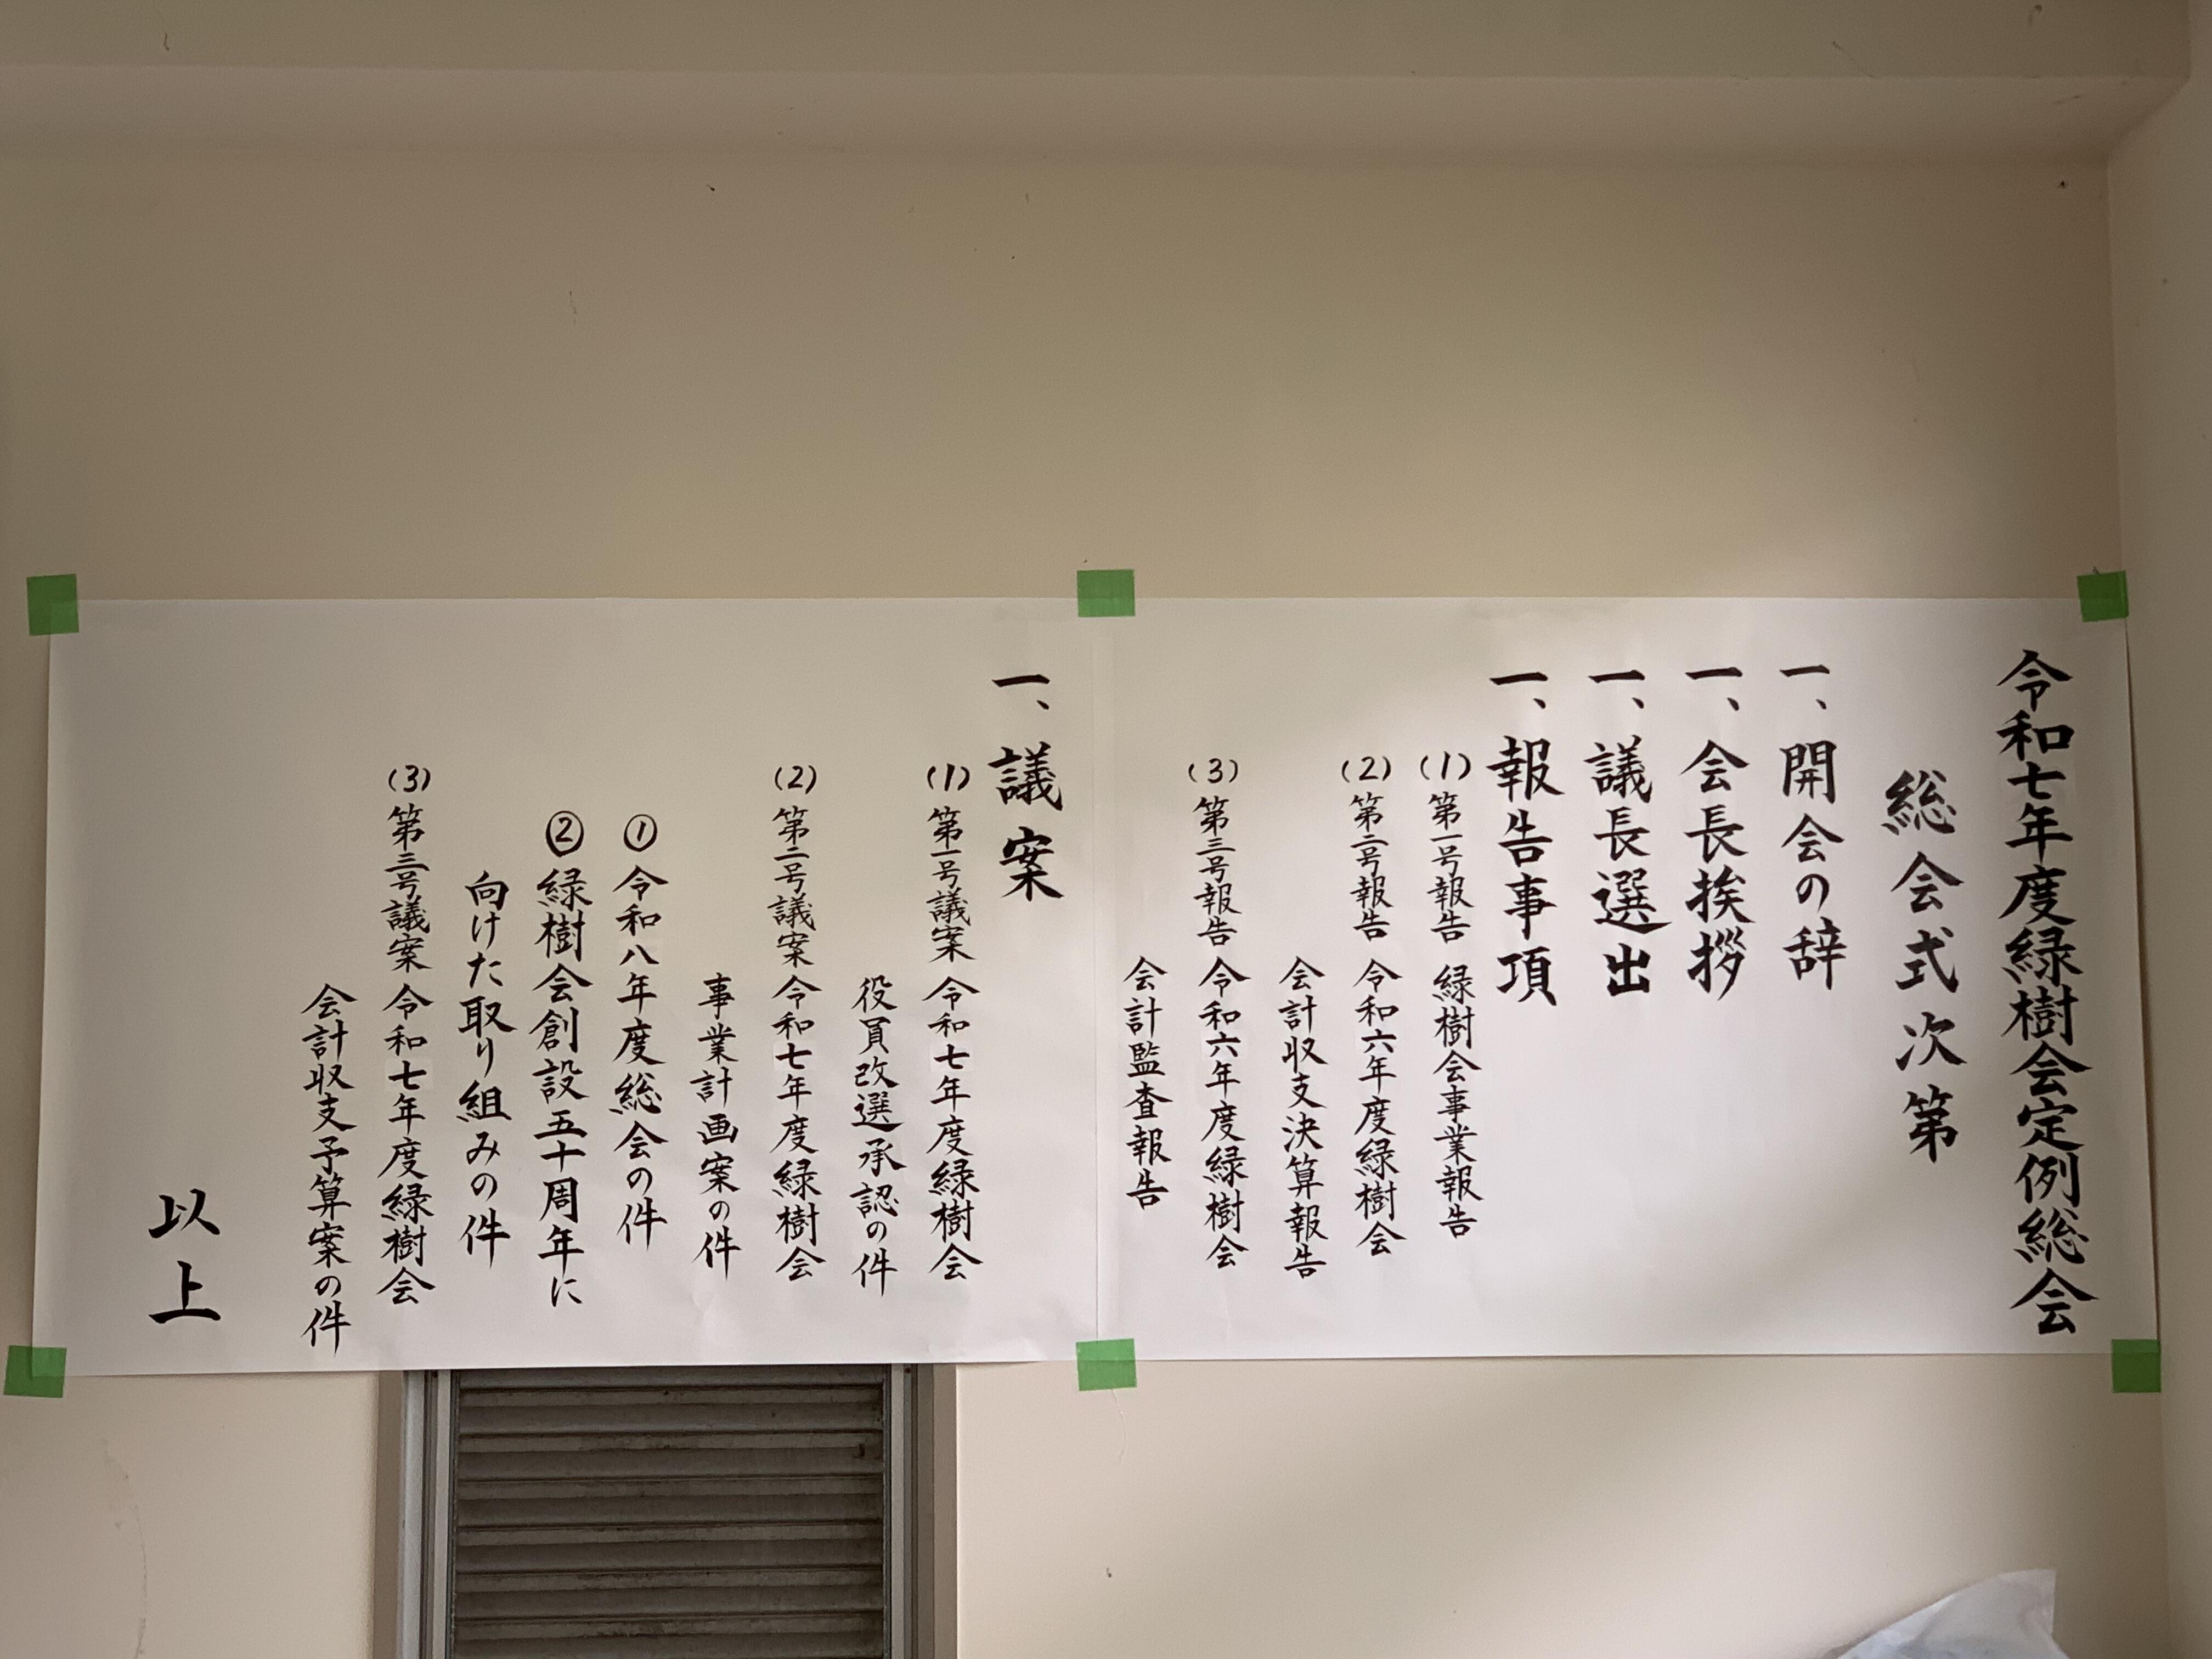 令和七年度緑樹会定例総会
総会式次第
一、開会の辞
一、会長挨拶
一、議長選出
一、報告事項
(1)第一号報告 緑樹会事業報告
(2)第二号報告 令和六年度緑樹会
会計収支決算報告
(3)第三号報告 令和六年度緑樹会
会計監査報告
一、議案
(1)第一号議案 令和七年度緑樹会
役員改選承認の件
(2)第二号議案 令和七年度緑樹会
事業計画案の件
①令和八年度総会の件
②緑樹会創設五十周年に
向けた取り組みの件
(3)第三号議案 令和七年度緑樹会
会計収支予算案の件
以上